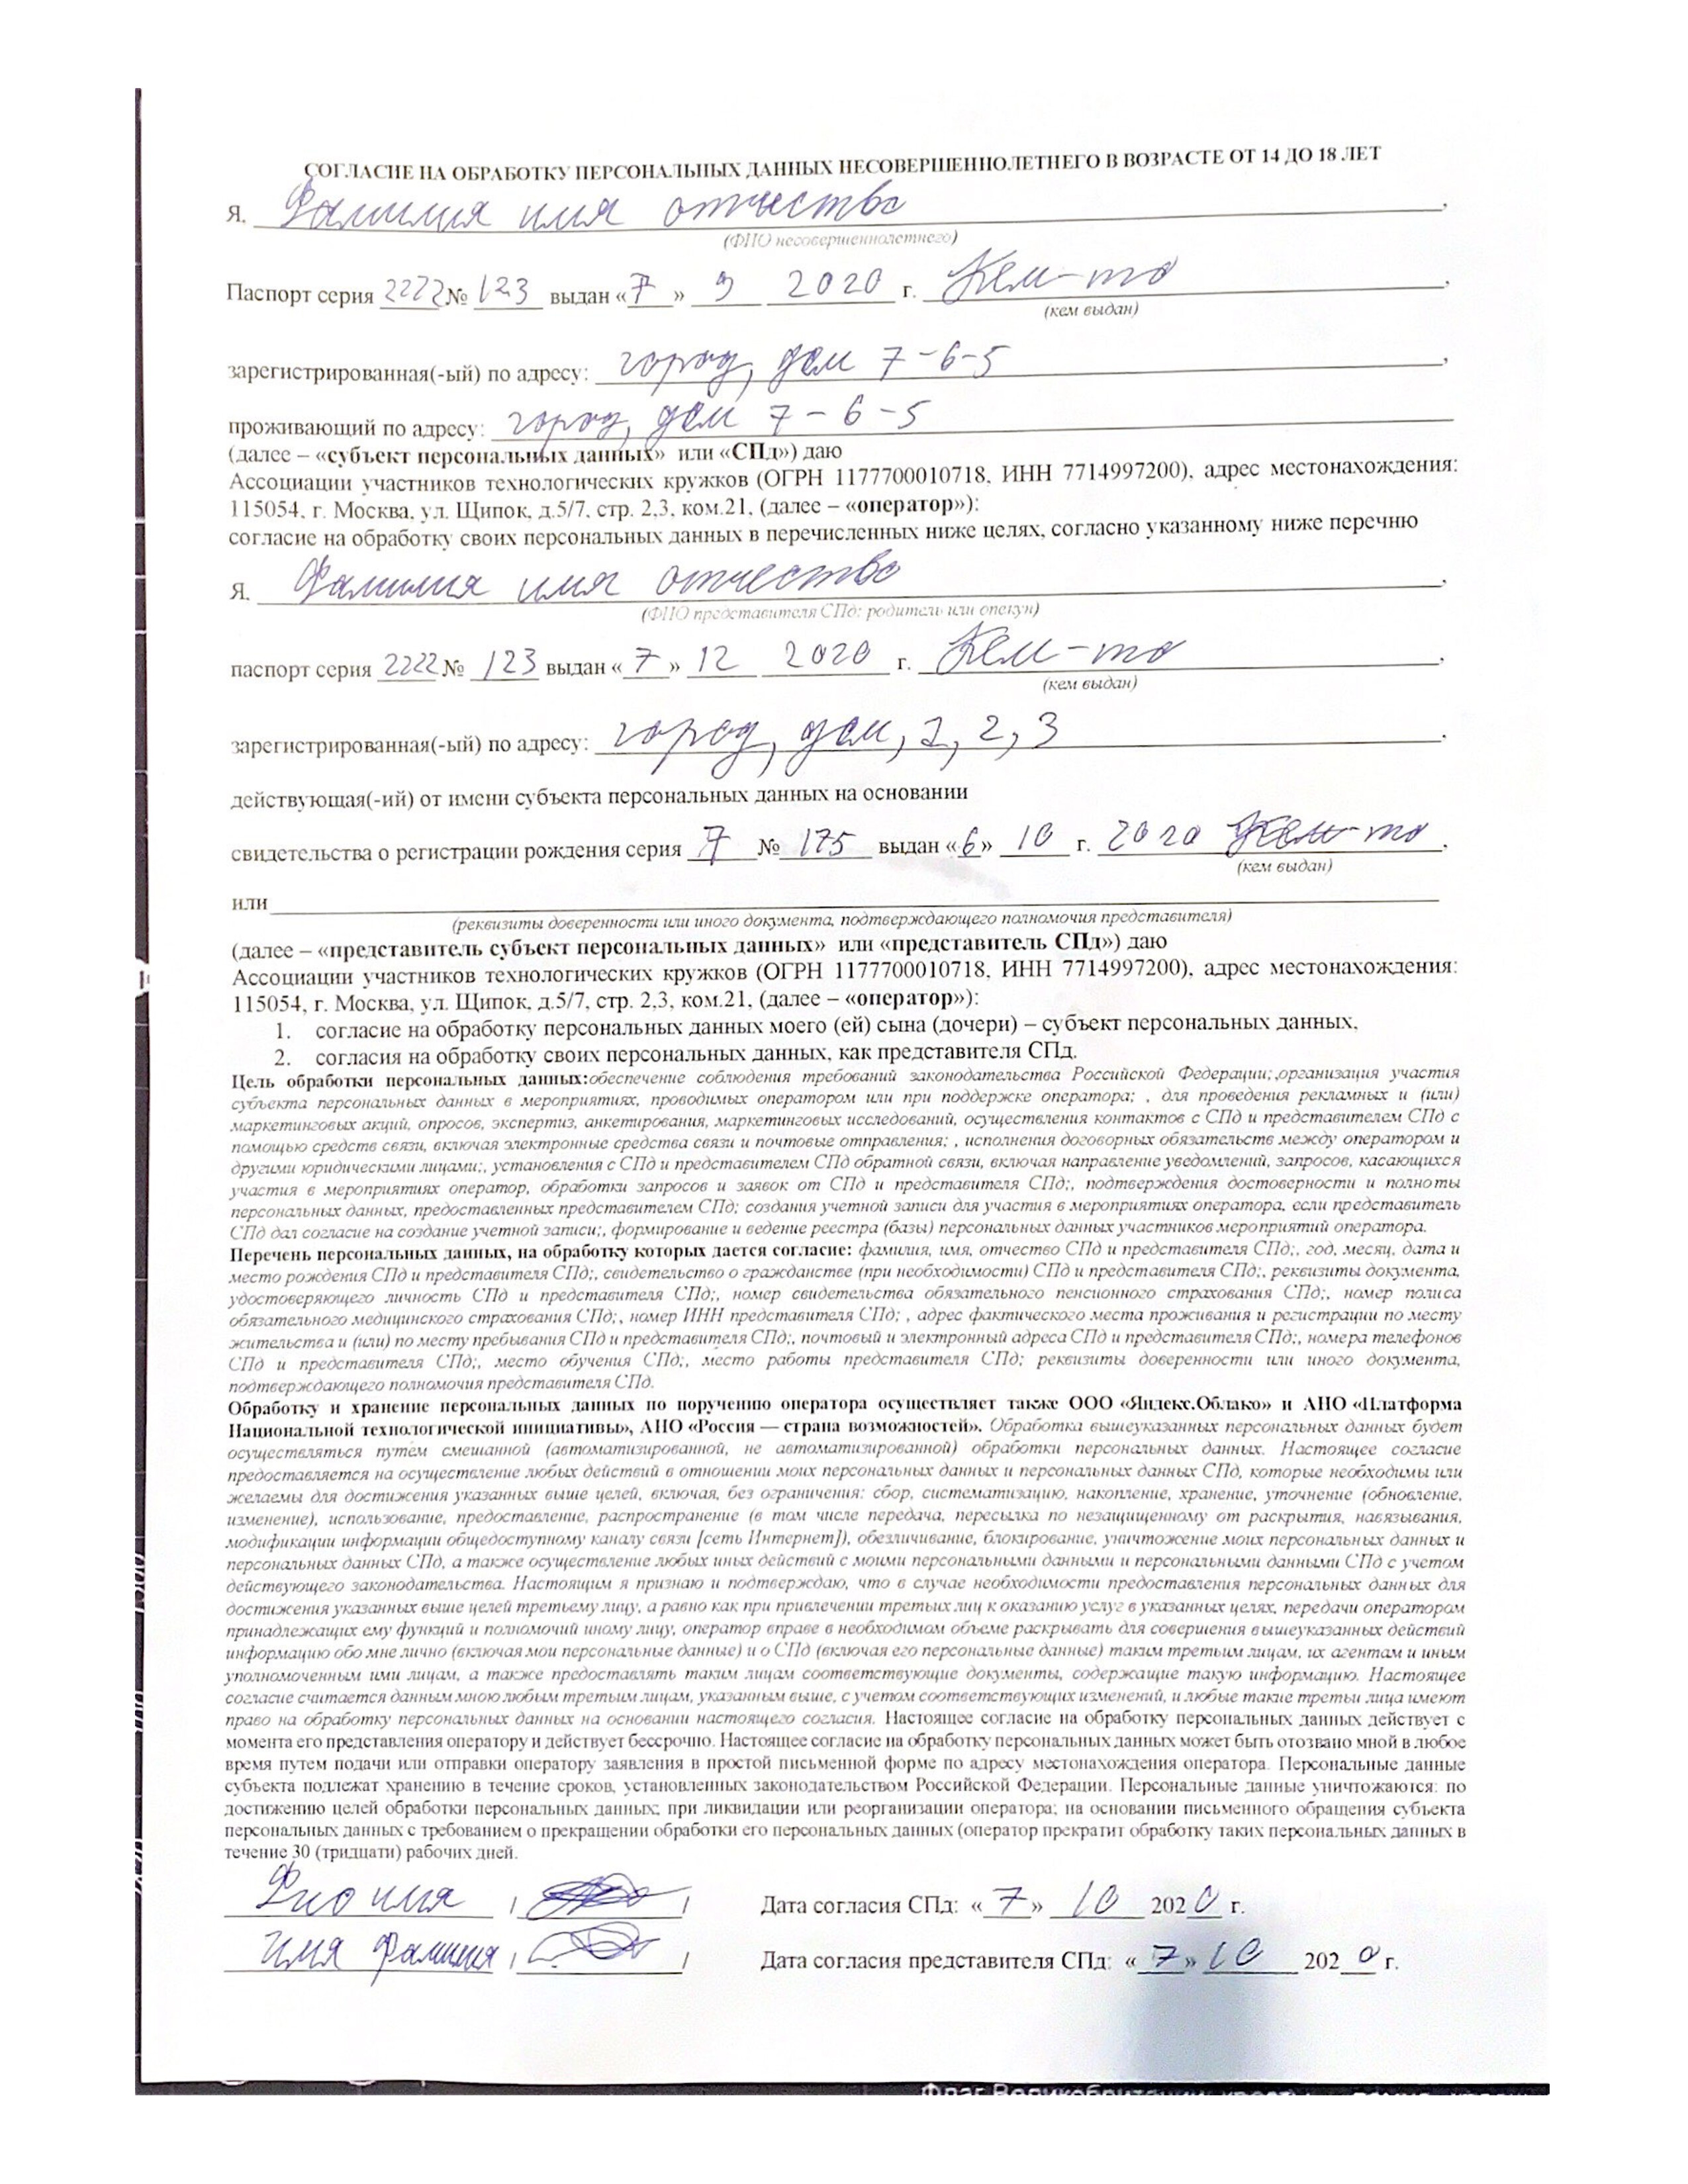 СОГЛАСИЕ НА ОБРАБОТКУ ПЕРСОНАЛЬНЫХ ДАННЫХ НЕСОВЕРШЕННОЛЕТНЕГО В ВОЗРАСТЕ ОТ 14 ДО 18 ЛЕТ
Я, Фамилия имя отчество,
(ФИО несовершеннолетнего)
Паспорт серия 2222 № 123 выдан «7» 9 2020 г. Кем-то,
(кем выдан)
зарегистрированная(-ый) по адресу: город, дом 7-6-5,
проживающий по адресу: город, дом 7-6-5
(далее – «субъект персональных данных» или «СПд») даю
Ассоциации участников технологических кружков (ОГРН 1177700010718, ИНН 7714997200), адрес местонахождения:
115054, г. Москва, ул. Щипок, д.5/7, стр. 2,3, ком.21, (далее – «оператор»):
согласие на обработку своих персональных данных в перечисленных ниже целях, согласно указанному ниже перечню
Я, Фамилия имя отчество,
(ФИО представителя СПд: родитель или опекун)
паспорт серия 2222 № 123 выдан «7» 12 2020 г. Кем-то,
(кем выдан)
зарегистрированная(-ый) по адресу: город, дом, 1, 2, 3,
действующая(-ий) от имени субъекта персональных данных на основании
свидетельства о регистрации рождения серия 7 № 175 выдан «6» 10 г. 2020 Кем-то,
(кем выдан)
или
(реквизиты доверенности или иного документа, подтверждающего полномочия представителя)
(далее – «представитель субъект персональных данных» или «представитель СПд») даю
Ассоциации участников технологических кружков (ОГРН 1177700010718, ИНН 7714997200), адрес местонахождения:
115054, г. Москва, ул. Щипок, д.5/7, стр. 2,3, ком.21, (далее – «оператор»):
1. согласие на обработку персональных данных моего (ей) сына (дочери) – субъект персональных данных,
2. согласия на обработку своих персональных данных, как представителя СПд.
Цель обработки персональных данных:обеспечение соблюдения требований законодательства Российской Федерации;,организация участия
субъекта персональных данных в мероприятиях, проводимых оператором или при поддержке оператора; , для проведения рекламных и (или)
маркетинговых акций, опросов, экспертиз, анкетирования, маркетинговых исследований, осуществления контактов с СПд и представителем СПд с
помощью средств связи, включая электронные средства связи и почтовые отправления; , исполнения договорных обязательств между оператором и
другими юридическими лицами;, установления с СПд и представителем СПд обратной связи, включая направление уведомлений, запросов, касающихся
участия в мероприятиях оператор, обработки запросов и заявок от СПд и представителя СПд;, подтверждения достоверности и полноты
персональных данных, предоставленных представителем СПд; создания учетной записи для участия в мероприятиях оператора, если представитель
СПд дал согласие на создание учетной записи;, формирование и ведение реестра (базы) персональных данных участников мероприятий оператора.
Перечень персональных данных, на обработку которых дается согласие: фамилия, имя, отчество СПд и представителя СПд;, год, месяц, дата и
место рождения СПд и представителя СПд;, свидетельство о гражданстве (при необходимости) СПд и представителя СПд;, реквизиты документа,
удостоверяющего личность СПд и представителя СПд;, номер свидетельства обязательного пенсионного страхования СПд;, номер полиса
обязательного медицинского страхования СПд;, номер ИНН представителя СПд; , адрес фактического места проживания и регистрации по месту
жительства и (или) по месту пребывания СПд и представителя СПд;, почтовый и электронный адреса СПд и представителя СПд;, номера телефонов
СПд и представителя СПд;, место обучения СПд;, место работы представителя СПд; реквизиты доверенности или иного документа,
подтверждающего полномочия представителя СПд.
Обработку и хранение персональных данных по поручению оператора осуществляет также ООО «Яндекс.Облако» и АНО «Платформа
Национальной технологической инициативы», АНО «Россия — страна возможностей». Обработка вышеуказанных персональных данных будет
осуществляться путем смешанной (автоматизированной, не автоматизированной) обработки персональных данных. Настоящее согласие
предоставляется на осуществление любых действий в отношении моих персональных данных и персональных данных СПд, которые необходимы или
желаемы для достижения указанных выше целей, включая, без ограничения: сбор, систематизацию, накопление, хранение, уточнение (обновление,
изменение), использование, предоставление, распространение (в том числе передача, пересылка по незащищенному от раскрытия, навязывания,
модификации информации общедоступному каналу связи [сеть Интернет]), обезличивание, блокирование, уничтожение моих персональных данных и
персональных данных СПд, а также осуществление любых иных действий с моими персональными данными и персональными данными СПд с учетом
действующего законодательства. Настоящим я признаю и подтверждаю, что в случае необходимости предоставления персональных данных для
достижения указанных выше целей третьему лицу, а равно как при привлечении третьих лиц к оказанию услуг в указанных целях, передачи оператором
принадлежащих ему функций и полномочий иному лицу, оператор вправе в необходимом объеме раскрывать для совершения вышеуказанных действий
информацию обо мне лично (включая мои персональные данные) и о СПд (включая его персональные данные) таким третьим лицам, их агентам и иным
уполномоченным ими лицам, а также предоставлять таким лицам соответствующие документы, содержащие такую информацию. Настоящее
согласие считается данным мною любым третьим лицам, указанным выше, с учетом соответствующих изменений, и любые такие третьи лица имеют
право на обработку персональных данных на основании настоящего согласия. Настоящее согласие на обработку персональных данных действует с
момента его представления оператору и действует бессрочно. Настоящее согласие на обработку персональных данных может быть отозвано мной в любое
время путем подачи или отправки оператору заявления в простой письменной форме по адресу местонахождения оператора. Персональные данные
субъекта подлежат хранению в течение сроков, установленных законодательством Российской Федерации. Персональные данные уничтожаются: по
достижению целей обработки персональных данных; при ликвидации или реорганизации оператора; на основании письменного обращения субъекта
персональных данных с требованием о прекращении обработки его персональных данных (оператор прекратит обработку таких персональных данных в
течение 30 (тридцати) рабочих дней.
Фио имя / / Дата согласия СПд: «7» 10 2020 г.
имя фамилия / / Дата согласия представителя СПд: «7» 10 2020 г.